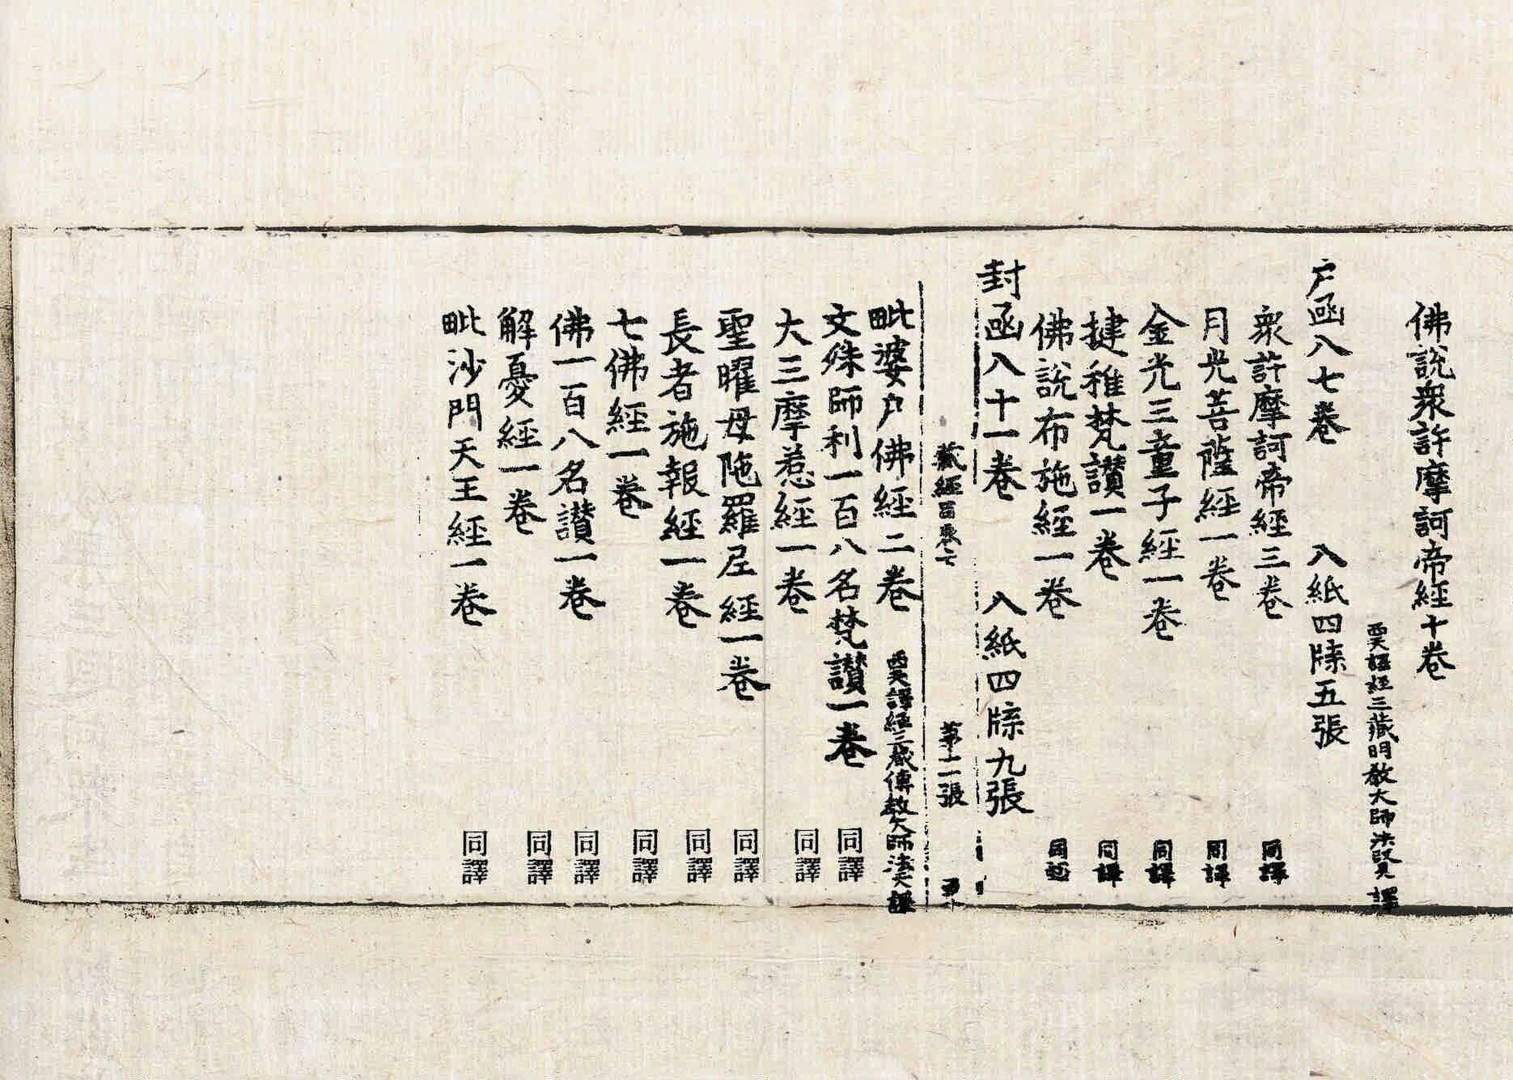 佛說衆許摩訶帝經十卷
西天譯經三藏明教大師法賢譯
户函八七卷 八紙四牓五張
衆許摩訶帝經三卷 同譯
月光菩薩經一卷 同譯
金光三童子經一卷 同譯
揵稚梵讃一卷 同譯
佛說布施經一卷 同譯
封函八十一卷 八紙四牓九張
藏經目 第十二張
毗婆户佛經二卷 西天譯經三藏傳教大師法天譯
文殊師利一百八名梵讃一卷 同譯
大三摩惹經一卷 同譯
聖曜母陁羅尼經一卷 同譯
長者施報經一卷 同譯
七佛經一卷 同譯
佛一百八名讃一卷 同譯
解憂經一卷 同譯
毗沙門天王經一卷 同譯